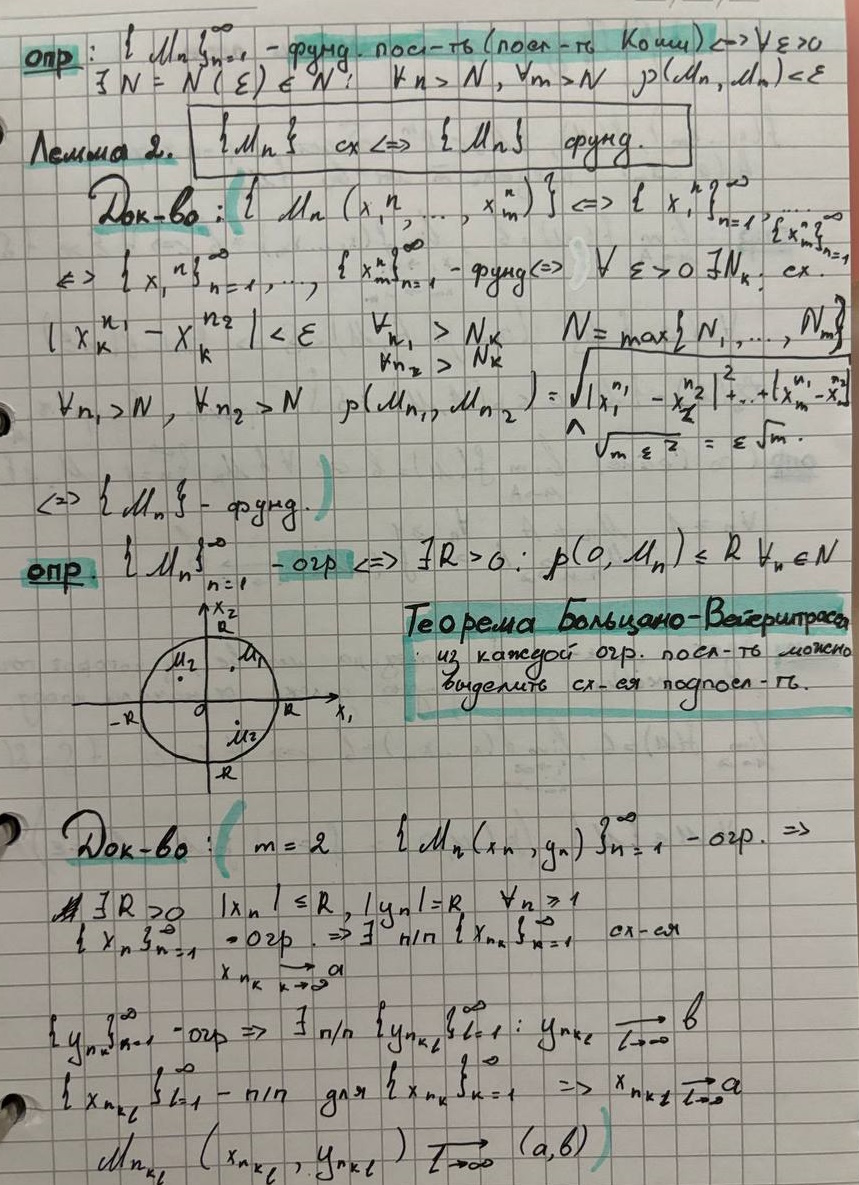 опр: { Mₙ }ₙ₌₁^∞ - фунд. посл-ть (посл-ть Коши) <=> ∀ ε>0
∃ N = N(ε) ∈ N: ∀n > N, ∀m > N ρ(Mₙ, Mₘ) < ε
Лемма 2. {Mₙ} сх <=> {Mₙ} фунд.
Док-во: ( { Mₙ (x₁ⁿ, ..., xₘⁿ) } <=> { x₁ⁿ }ₙ₌₁^∞, ....
{xₘⁿ}ₙ₌₁^∞
<=> { x₁ⁿ }ₙ₌₁^∞, ..., { xₘⁿ }ₙ₌₁^∞ - фунд <=> ∀ ε > 0 ∃ Nₖ: сх.
| xₖ^{n₁} - xₖ^{n₂} | < ε ∀n₁ > Nₖ N = max{N₁, ..., Nₘ}
∀n₂ > Nₖ
∀n₁ > N, ∀n₂ > N ρ(Mₙ₁, Mₙ₂) = √|x₁^{n₁} - x₁^{n₂}|² + .. + |xₘ^{n₁} - xₘ^{n₂}|
^ √(m ε²) = ε √m.
<=> { Mₙ } - фунд. )
опр. { Mₙ }ₙ₌₁^∞ - огр <=> ∃ R > 0: ρ(0, Mₙ) ≤ R ∀n ∈ N
x₂
R
M₂ M₁
-R 0 R x₁
M₃
-R
Теорема Больцано-Вейерштрасса
из каждой огр. посл-ть можно
выделить сх-ся подпосл-ть.
Док-во: ( m = 2 { Mₙ (xₙ, yₙ) }ₙ₌₁^∞ - огр. =>
∃ R > 0 |xₙ| ≤ R, |yₙ| = R ∀n ≥ 1
{ xₙ }ₙ₌₁^∞ - огр. => ∃ п/п { xₙₖ }ₖ₌₁^∞ сх-ся
xₙₖ →_{k→∞} a
{ yₙₖ }ₖ₌₁^∞ - огр => ∃ п/п { yₙₖₗ }ₗ₌₁^∞ : yₙₖₗ →_{l→∞} b
{ xₙₖₗ }ₗ₌₁^∞ - п/п для { xₙₖ }ₖ₌₁^∞ => xₙₖₗ →_{l→∞} a
Mₙₖₗ (xₙₖₗ, yₙₖₗ) →_{l→∞} (a, b) )